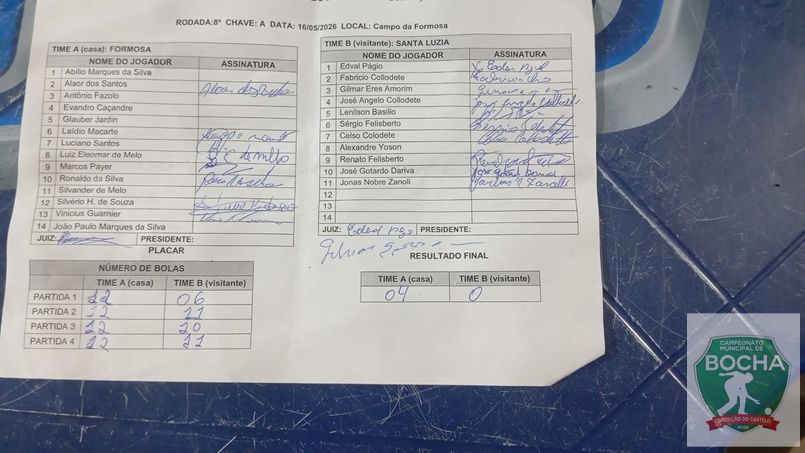 RODADA:8ª CHAVE: A DATA: 16/05/2026 LOCAL: Campo da Formosa
TIME A (casa): FORMOSA
NOME DO JOGADOR ASSINATURA
1 Abilio Marques da Silva
2 Alaor dos Santos
3 Antônio Fazolo
4 Evandro Caçandre
5 Glauber Jardin
6 Laídio Macarte
7 Luciano Santos
8 Luiz Eleomar de Melo
9 Marcos Payer
10 Ronaldo da Silva
11 Silvander de Melo
12 Silvério H. de Souza
13 Vinicius Guarnier
14 João Paulo Marques da Silva
JUIZ: PRESIDENTE:
TIME B (visitante): SANTA LUZIA
NOME DO JOGADOR ASSINATURA
1 Edval Págio
2 Fabricio Collodete
3 Gilmar Eres Amorim
4 José Angelo Collodete
5 Lenilson Basilio
6 Sérgio Felisberto
7 Celso Colodete Celso Colodetto
8 Alexandre Yoson
9 Renato Felisberto
10 José Gotardo Dariva
11 Jonas Nobre Zanoli
12
13
14
JUIZ: PRESIDENTE:
PLACAR
NÚMERO DE BOLAS
TIME A (casa) TIME B (visitante)
PARTIDA 1 12 06
PARTIDA 2 12 11
PARTIDA 3 12 10
PARTIDA 4 12 11
RESULTADO FINAL
TIME A (casa) TIME B (visitante)
04 0
CAMPEONATO
MUNICIPAL DE
BOCHA
CONCEIÇÃO DO CASTELO
2026